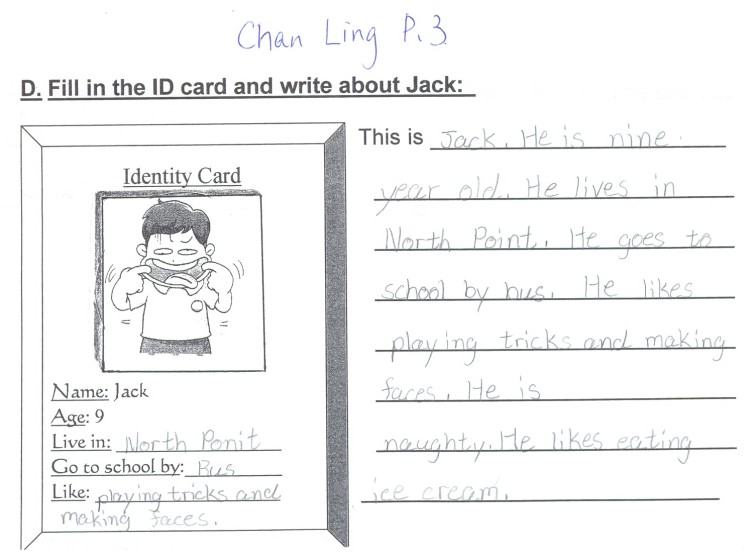 Chan Ling P.3
D. Fill in the ID card and write about Jack:
Identity Card
Name: Jack
Age: 9
Live in: North Ponit
Go to school by: Bus
Like: playing tricks and
making faces.
This is Jack. He is nine
year old. He lives in
North Point. He goes to
school by bus. He likes
playing tricks and making
faces. He is
naughty. He likes eating
ice cream.